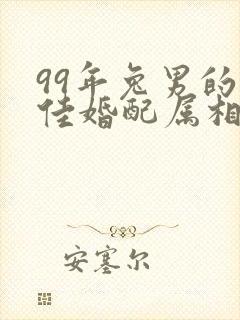 99年兔男的
佳婚配属相
安塞尔